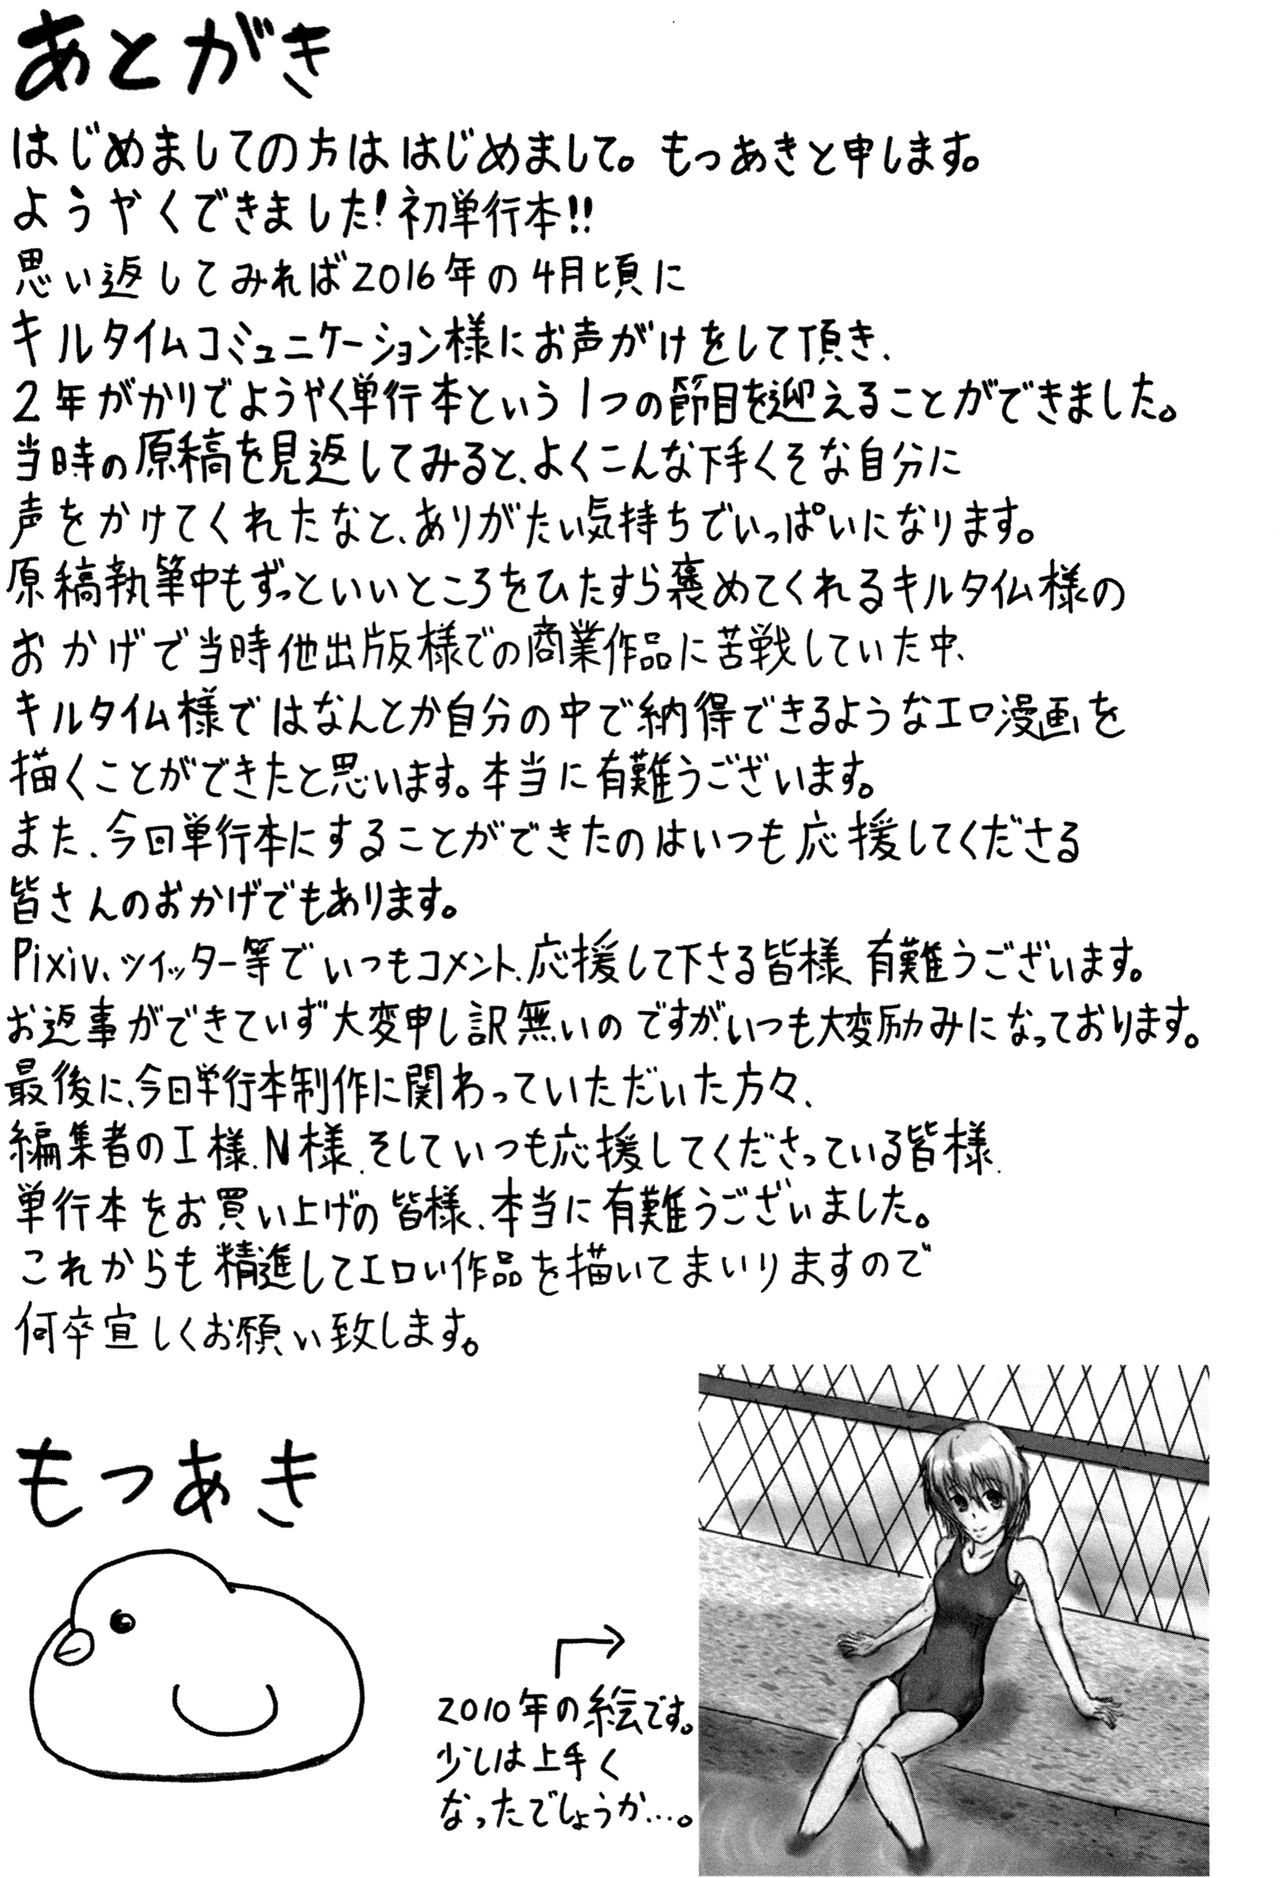 あとがき
はじめましての方は はじめまして。もっあきと申します。
ようやくできました!初単行本!!
思い返してみれば2016年の4月頃に
キルタイムコミュニケーション様にお声がけをして頂き、
2年がかりでようやく単行本という1つの節目を迎えることができました。
当時の原稿を見返してみると、よくこんな下手くそな自分に
声をかけてくれたなと、ありがたい気持ちでいっぱいになります。
原稿執筆中もずっといいところをひたすら褒めてくれるキルタイム様の
おかげで当時他出版様での商業作品に苦戦していた中、
キルタイム様ではなんとか自分の中で納得できるようなエロ漫画を
描くことができたと思います。本当に有難うございます。
また、今回単行本にすることができたのはいつも応援してくださる
皆さんのおかげでもあります。
Pixiv、ツイッター等でいつもコメント、応援して下さる皆様、有難うございます。
お返事ができていず大変申し訳無いのですが、いつも大変励みになっております。
最後に、今日単行本制作に関わっていただいた方々、
編集者のI様、N様、そしていつも応援してくださっている皆様、
単行本をお買い上げの皆様、本当に有難うございました。
これからも精進してエロい作品を描いてまいりますので
何卒宜しくお願い致します。
もつあき
2010年の絵です。
少しは上手く
なったでしょうか…。